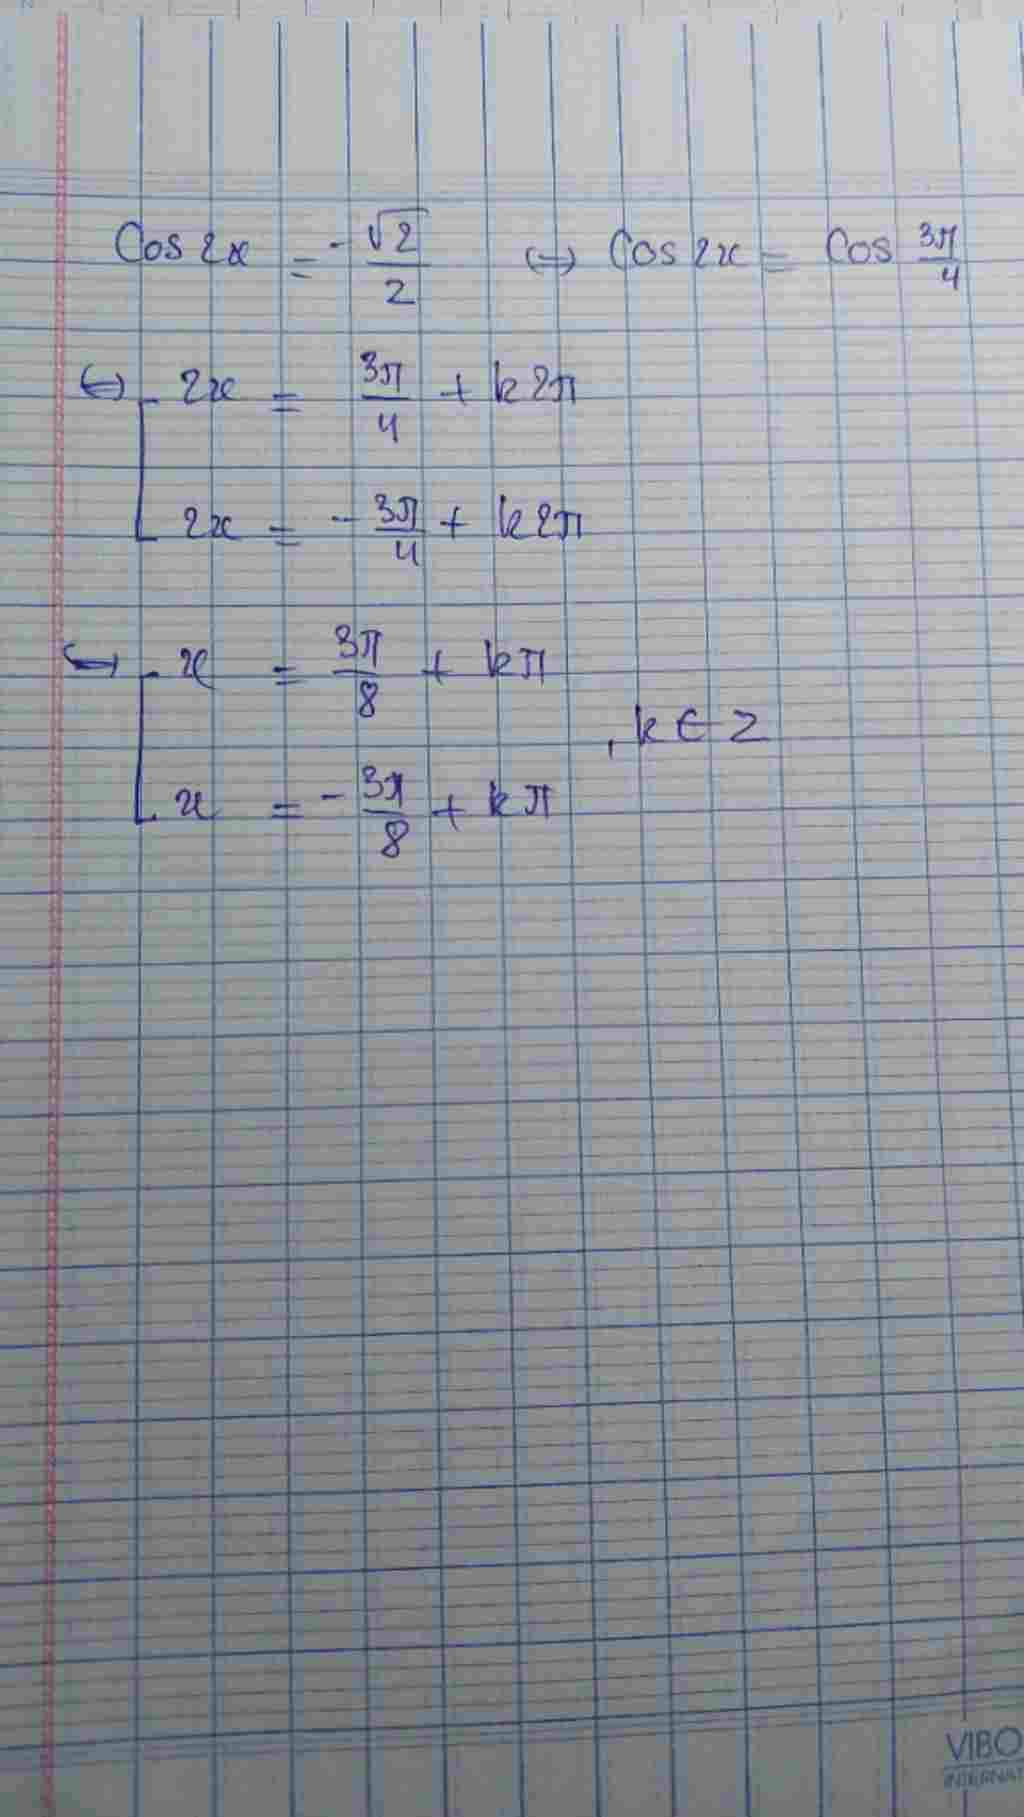 Cos 2x = - √2/2 ↔ Cos 2x = Cos 3π/4
↔ [ 2x = 3π/4 + k2π
2x = - 3π/4 + k2π
↔ [ x = 3π/8 + kπ
, k ∈ Z
x = - 3π/8 + kπ
VIBO
INTERNAT